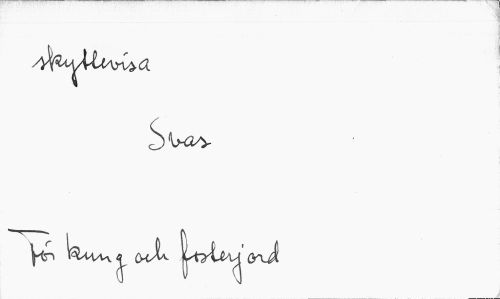 skyttevisa
Svas
För kung och fosterjord